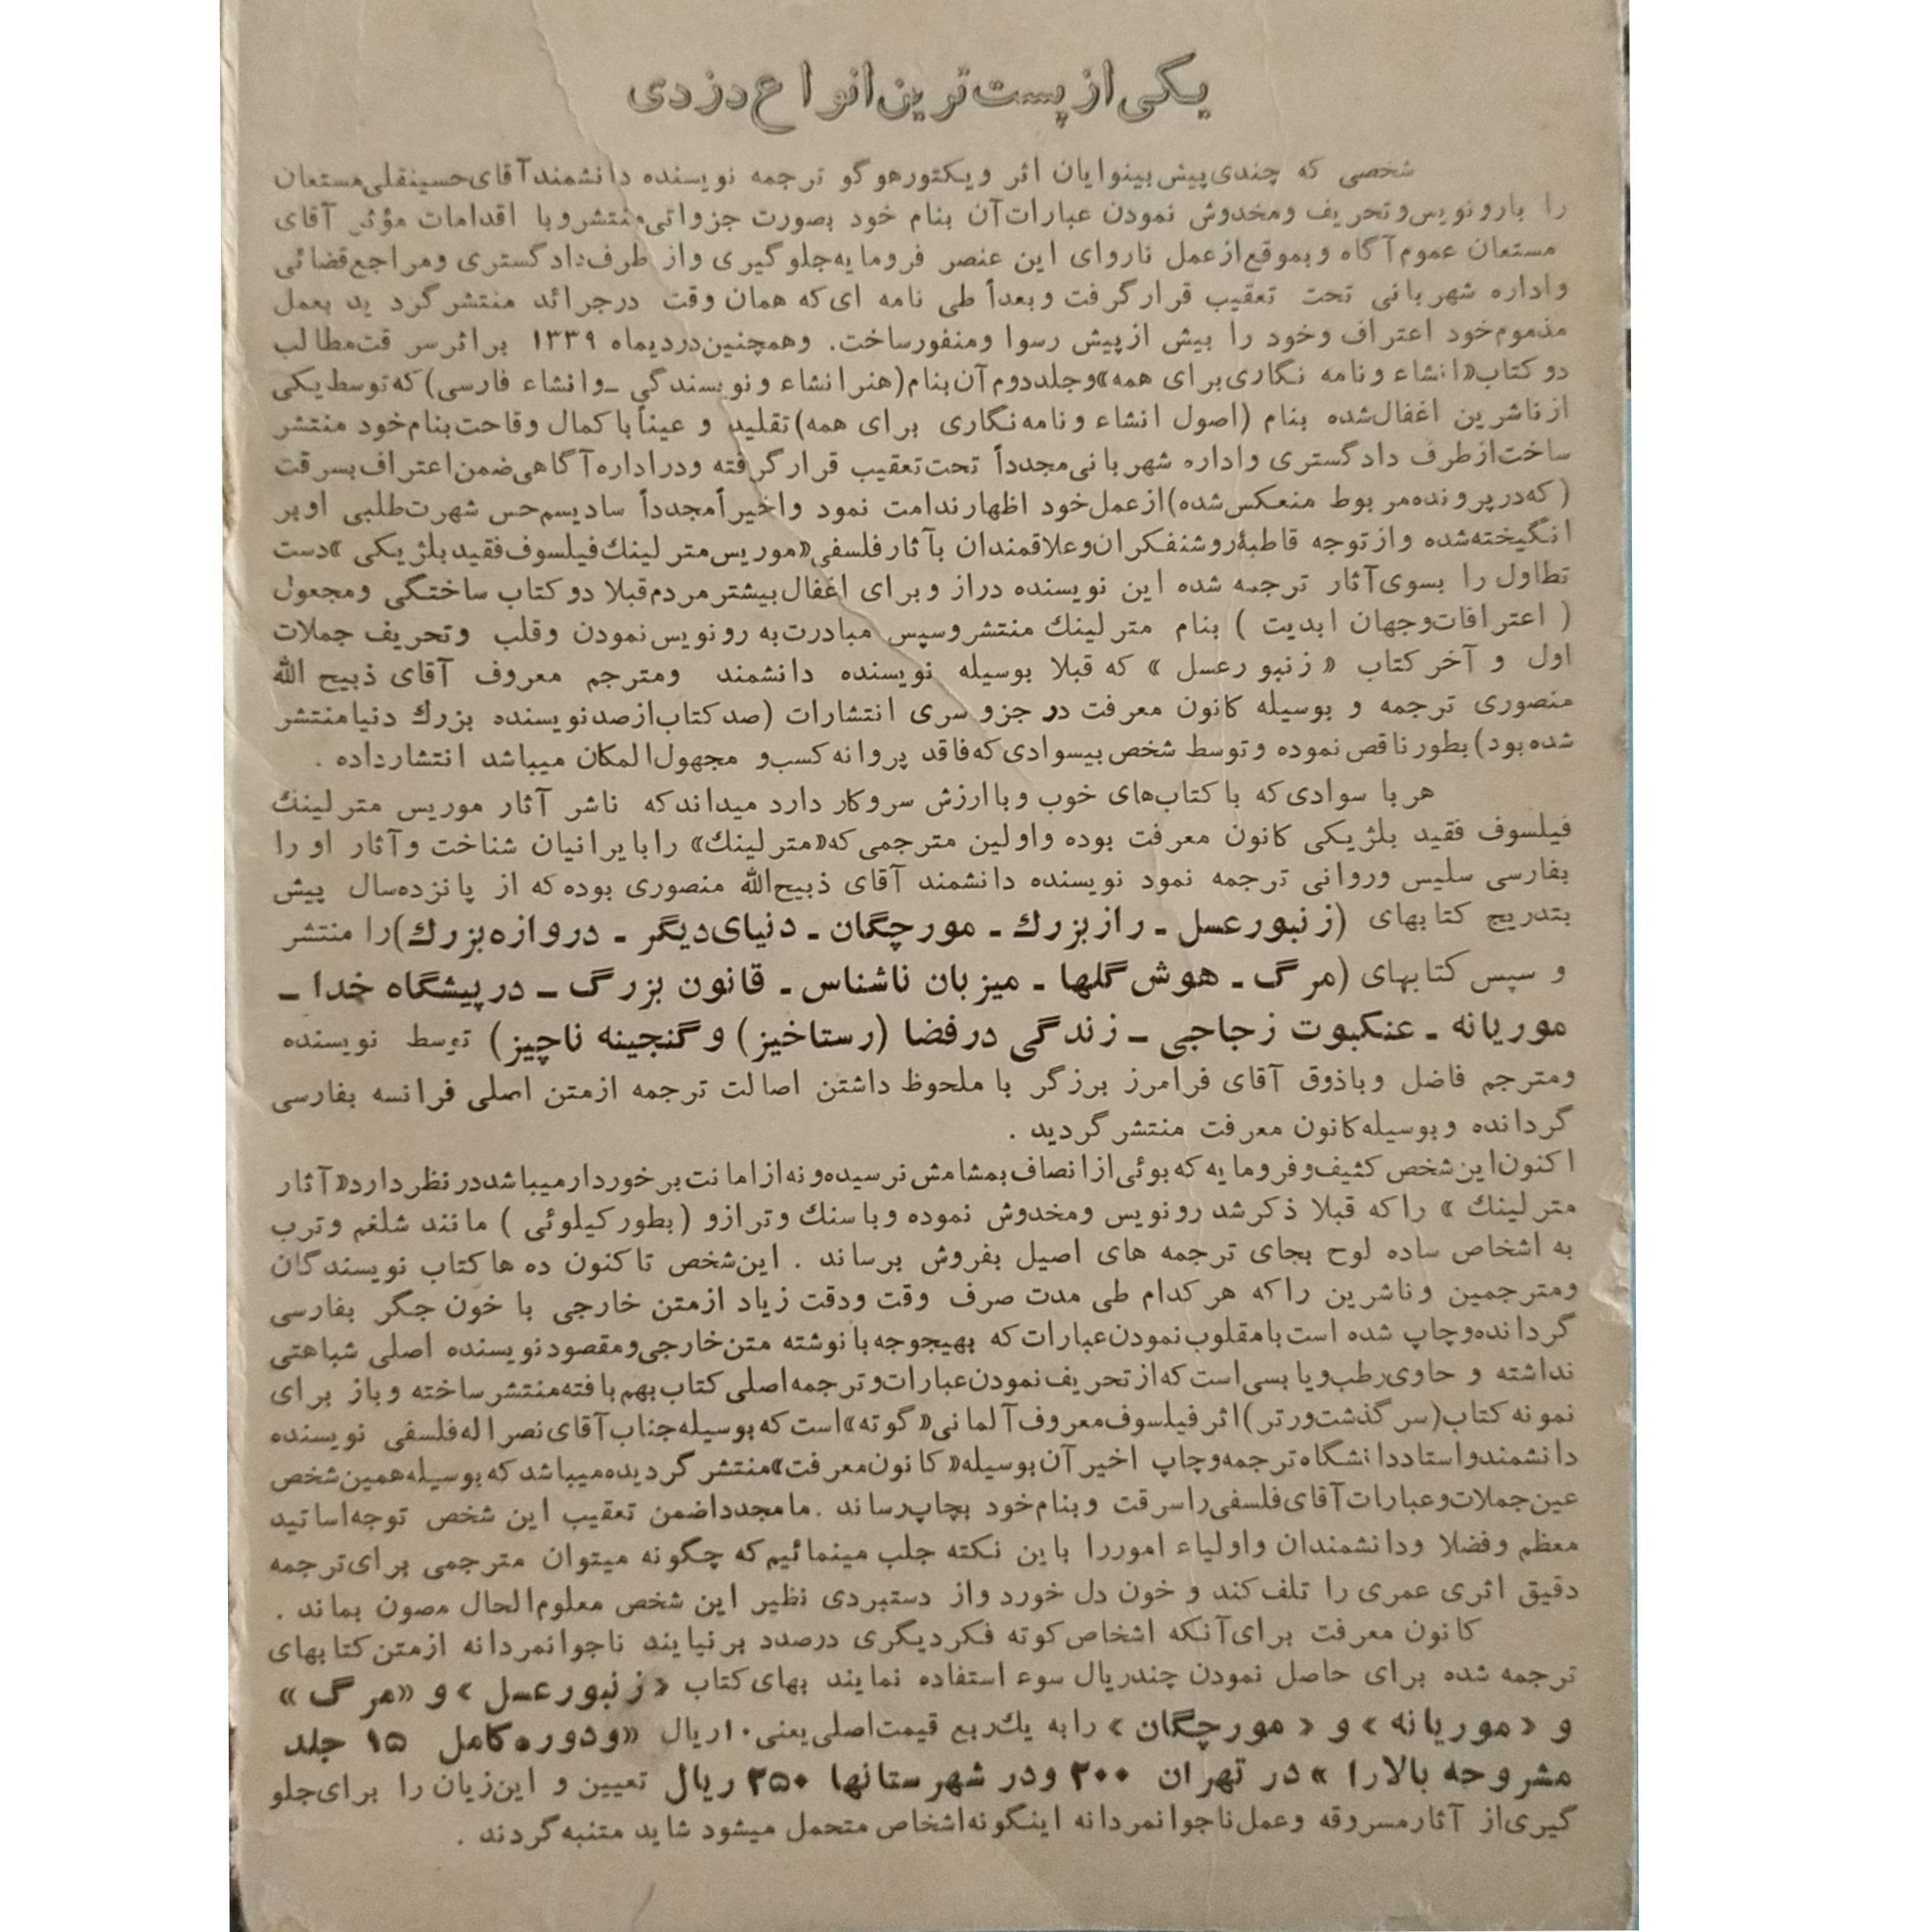 یکی از پست ترین انواع دزدی
شخصی که چندی پیش بینوایان اثر ویکتورهوگو ترجمه نویسنده دانشمند آقای حسینقلی مستعان
را بارونویس و تحریف ومخدوش نمودن عبارات آن بنام خود بصورت جزواتی منتشر و با اقدامات مؤثر آقای
مستعان عموم آگاه و بموقع از عمل ناروای این عنصر فرومایه جلوگیری واز طرف دادگستری ومراجع قضائی
واداره شهربانی تحت تعقیب قرار گرفت و بعداً طی نامه ای که همان وقت درجرائد منتشر گردید بعمل
مذموم خود اعتراف وخود را بیش از پیش رسوا ومنفور ساخت. وهمچنین در دیماه ۱۳۳۹ براثر سرقت مطالب
دو کتاب «انشاء ونامه نگاری برای همه» وجلد دوم آن بنام (هنر انشاء ونویسندگی ـ وانشاء فارسی) که توسط یکی
از ناشرین اغفال شده بنام (اصول انشاء ونامه نگاری برای همه) تقلید و عیناً با کمال وقاحت بنام خود منتشر
ساخت از طرف دادگستری واداره شهربانی مجدداً تحت تعقیب قرار گرفته ودر اداره آگاهی ضمن اعتراف بسرقت
(که در پرونده مربوط منعکس شده) از عمل خود اظهار ندامت نمود واخیراً مجدداً سادیسم حس شهرت طلبی او بر
انگیخته شده واز توجه قاطبهٔ روشنفکران وعلاقمندان بآثار فلسفی «موریس مترلینك فیلسوف فقید بلژیکی» دست
تطاول را بسوی آثار ترجمه شده این نویسنده دراز وبرای اغفال بیشتر مردم قبلا دو کتاب ساختگی ومجعول
( اعترافات وجهان ابدیت ) بنام مترلینك منتشر وسپس مبادرت به رونویس نمودن وقلب وتحریف جملات
اول و آخر کتاب « زنبورعسل » که قبلا بوسیله نویسنده دانشمند ومترجم معروف آقای ذبیح الله
منصوری ترجمه و بوسیله کانون معرفت در جزو سری انتشارات (صد کتاب از صد نویسنده بزرك دنیا منتشر
شده بود) بطور ناقص نموده وتوسط شخص بیسوادی که فاقد پروانه کسب و مجهول المکان میباشد انتشار داده .
هر با سوادی که با کتاب های خوب وباارزش سروکار دارد میداند که ناشر آثار موریس مترلینك
فیلسوف فقید بلژیکی کانون معرفت بوده واولین مترجمی که «مترلینك» را بایرانیان شناخت وآثار او را
بفارسی سلیس وروانی ترجمه نمود نویسنده دانشمند آقای ذبیح الله منصوری بوده که از پانزده سال پیش
بتدریج کتابهای (زنبورعسل ـ رازبزرك ـ مورچگان ـ دنیای دیگر ـ دروازه بزرك) را منتشر
و سپس کتابهای (مرگ ـ هوش گلها ـ میزبان ناشناس ـ قانون بزرگ ـ در پیشگاه خدا ـ
موریانه ـ عنکبوت زجاجی ـ زندگی در فضا (رستاخیز) و گنجینه ناچیز) توسط نویسنده
ومترجم فاضل وباذوق آقای فرامرز برزگر با ملحوظ داشتن اصالت ترجمه از متن اصلی فرانسه بفارسی
گردانده وبوسیله کانون معرفت منتشر گردید .
اکنون این شخص کثیف وفرومایه که بوئی از انصاف بمشامش نرسیده ونه از امانت برخوردار میباشد در نظر دارد «آثار
مترلینك » را که قبلا ذکر شد رونویس ومخدوش نموده وبا سنك وترازو ( بطور کیلوئی ) مانند شلغم وترب
به اشخاص ساده لوح بجای ترجمه های اصیل بفروش برساند . این شخص تاکنون ده ها کتاب نویسندگان
ومترجمین وناشرین را که هر کدام طی مدت صرف وقت ودقت زیاد از متن خارجی با خون جگر بفارسی
گردانده وچاپ شده است با مقلوب نمودن عبارات که بهیچوجه با نوشته متن خارجی ومقصود نویسنده اصلی شباهتی
نداشته و حاوی رطب ویابسی است که از تحریف نمودن عبارات وترجمه اصلی کتاب بهم بافته منتشر ساخته وباز برای
نمونه کتاب (سرگذشت ورتر) اثر فیلسوف معروف آلمانی «گوته» است که بوسیله جناب آقای نصراله فلسفی نویسنده
دانشمند واستاد دانشگاه ترجمه وچاپ اخیر آن بوسیله «کانون معرفت» منتشر گردیده میباشد که بوسیله همین شخص
عین جملات وعبارات آقای فلسفی را سرقت وبنام خود بچاپ رساند . ما مجدداضمن تعقیب این شخص توجه اساتید
معظم وفضلا ودانشمندان واولیاء اموررا باین نکته جلب مینمائیم که چگونه میتوان مترجمی برای ترجمه
دقیق اثری عمری را تلف کند و خون دل خورد واز دستبردی نظیر این شخص معلوم الحال مصون بماند .
کانون معرفت برای آنکه اشخاص کوته فکر دیگری درصدد برنیایند ناجوانمردانه از متن کتابهای
ترجمه شده برای حاصل نمودن چند ریال سوء استفاده نمایند بهای کتاب «زنبورعسل» و «مرگ»
و «موریانه» و «مورچگان» را به یك ربع قیمت اصلی یعنی ۱۰ ریال «ودوره کامل ۱۵ جلد
مشروحه بالا را» در تهران ۲۰۰ ودر شهرستانها ۲۵۰ ریال تعیین و این زیان را برای جلو
گیری از آثار مسروقه وعمل ناجوانمردانه اینگونه اشخاص متحمل میشود شاید متنبه گردند .